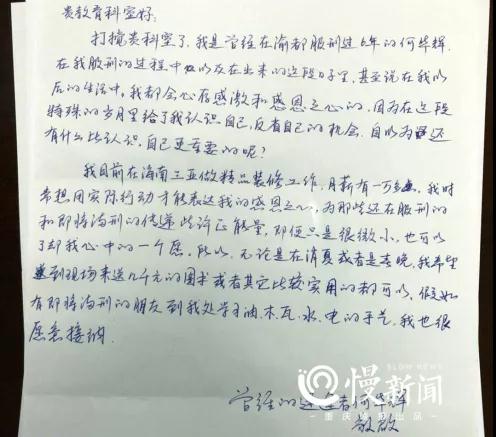 贵教育科室好:
打搅贵科室了,我是曾经在渝都服刑过6年的何华辉.
在我服刑的过程中以及在出来的这段日子里,甚至说在我以
后的生活中,我都会心存感激和感恩之心的,因为在这段
特殊的岁月里给了我认识自己,反省自己的机会.自以为还
有什么比认识自己更重要的呢?
我目前在海南三亚做精品装修工作.月薪有一万多,我时
常想用实际行动才能表达我的感恩之心,为那些还在服刑的
和即将满刑的传递些许正能量,即便只是很微小,也可以
了却我心中的一个愿.所以,无论是在消夏或者是春晚,我希望
到现场来送几千元的图书或者其它比较实用的都可以,假如
有即将满刑的朋友到我处学习油、木、瓦、水、电的手艺,我也很
愿意接纳.
曾经的 何华辉
敬启
慢新闻
SLOW NEWS
重庆 出品